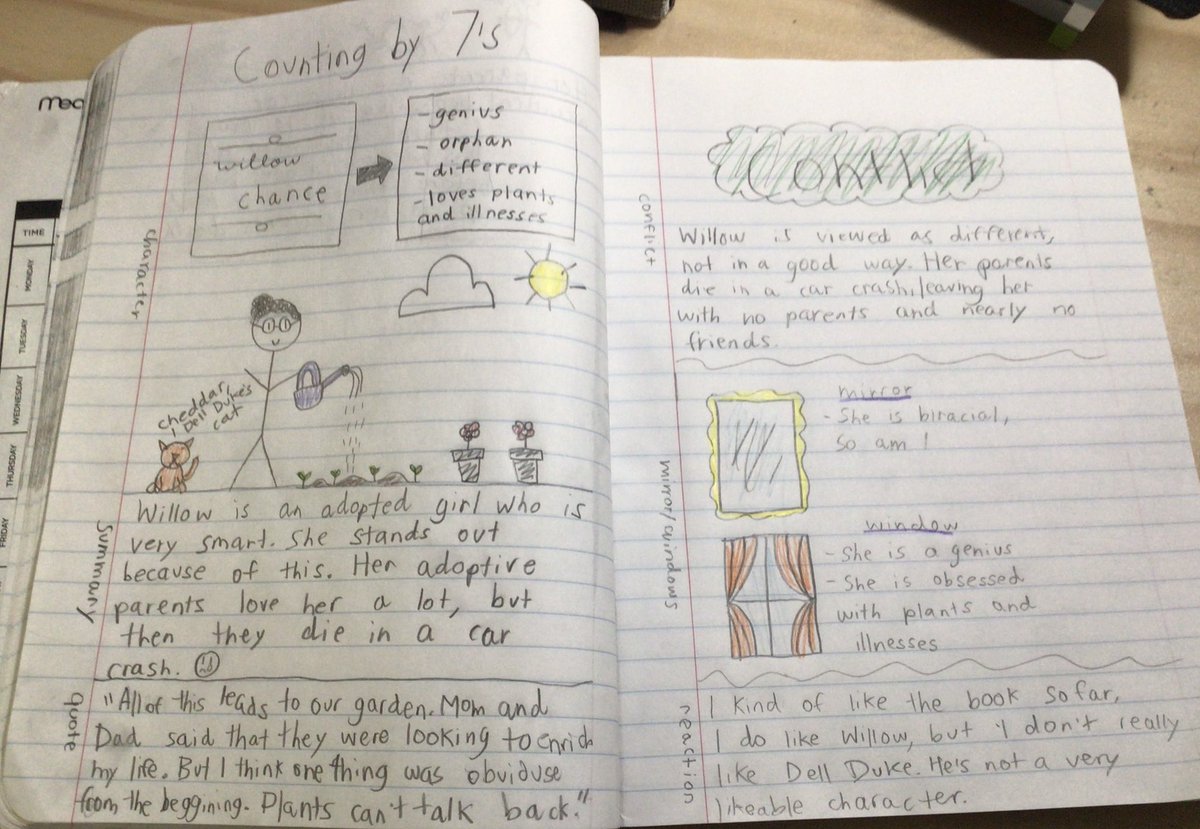 Counting by 7's
meo
TIME
MONDAY
TUESDAY
WEDNESDAY
THURSDAY
FRIDAY
character
willow
chance
-genius
- orphan
- different
-loves plants
and illnesses
cheddar,
Dell Duke's
cat
Summary
Willow is an adopted girl who is
very smart. She stands out
because of this. Her adoptive
parents love her a lot, but
then they die in a car
crash.
quote
"All of this leads to our garden. Mom and
Dad said that they were looking to enrich
my life. But I think one thing was obviduse
from the beggining. Plants can't talk back."
conflict
Conflict
Willow is viewed as different,
not in a good way. Her parents
die in a car crash, leaving her
with no parents and nearly no
friends.
mirror/windows
mirror
- She is biracial,
so am I
window
- She is a genius
- She is obsessed
with plants and
illnesses
reaction
I kind of like the book so far,
I do like Willow, but I don't really
like Dell Duke. He's not a very
likeable character.